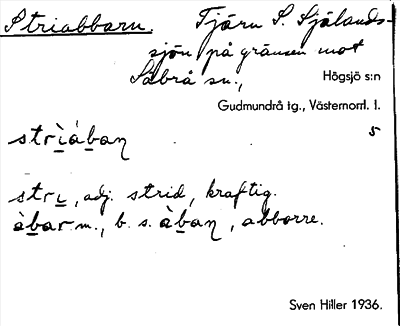 Striabbarn. Tjärn S. Själands-
sjön på gränsen mot
Säbrå sn.,
Högsjö s:n
Gudmundrå tg., Västernorrl. l.
5
strìában
strɩ, adj. strid, kraftig.
àbar m., b. s. àban, abborre.
Sven Hiller 1936.